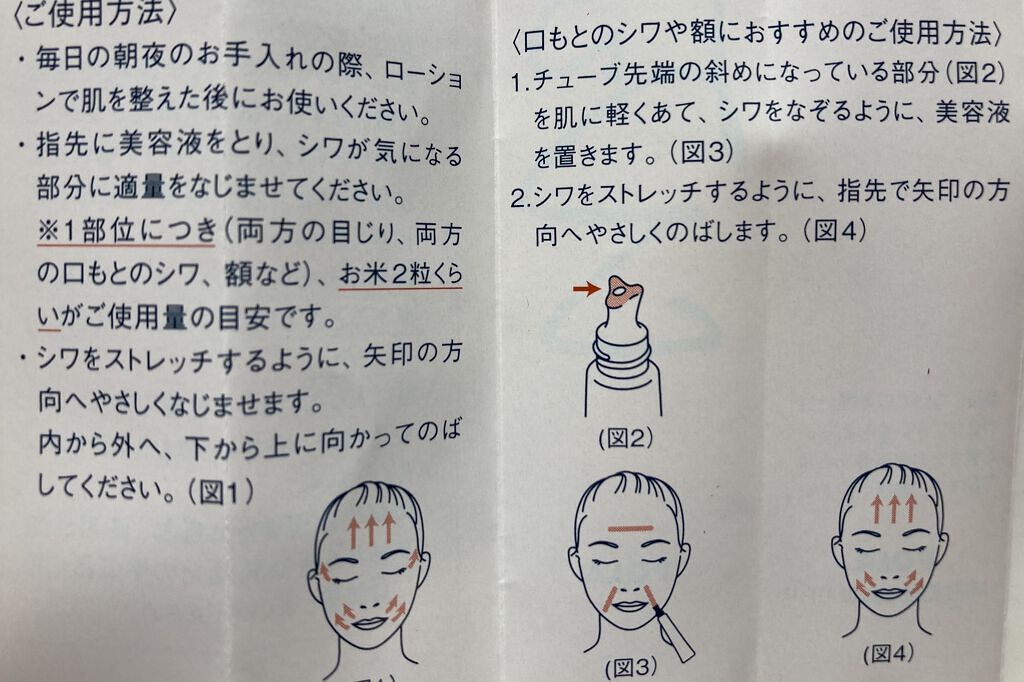 〈ご使用方法〉
・毎日の朝夜のお手入れの際、ローショ
ンで肌を整えた後にお使いください。
・指先に美容液をとり、シワが気になる
部分に適量をなじませてください。
※1部位につき(両方の目じり、両方
の口もとのシワ、額など)、お米2粒くら
いがご使用量の目安です。
・シワをストレッチするように、矢印の方
向へやさしくなじませます。
内から外へ、下から上に向かってのば
してください。(図1)
〈口もとのシワや額におすすめのご使用方法〉
1.チューブ先端の斜めになっている部分(図2)
を肌に軽くあて、シワをなぞるように、美容液
を置きます。(図3)
2.シワをストレッチするように、指先で矢印の方
向へやさしくのばします。(図4)
(図2)
(図3)
(図4)